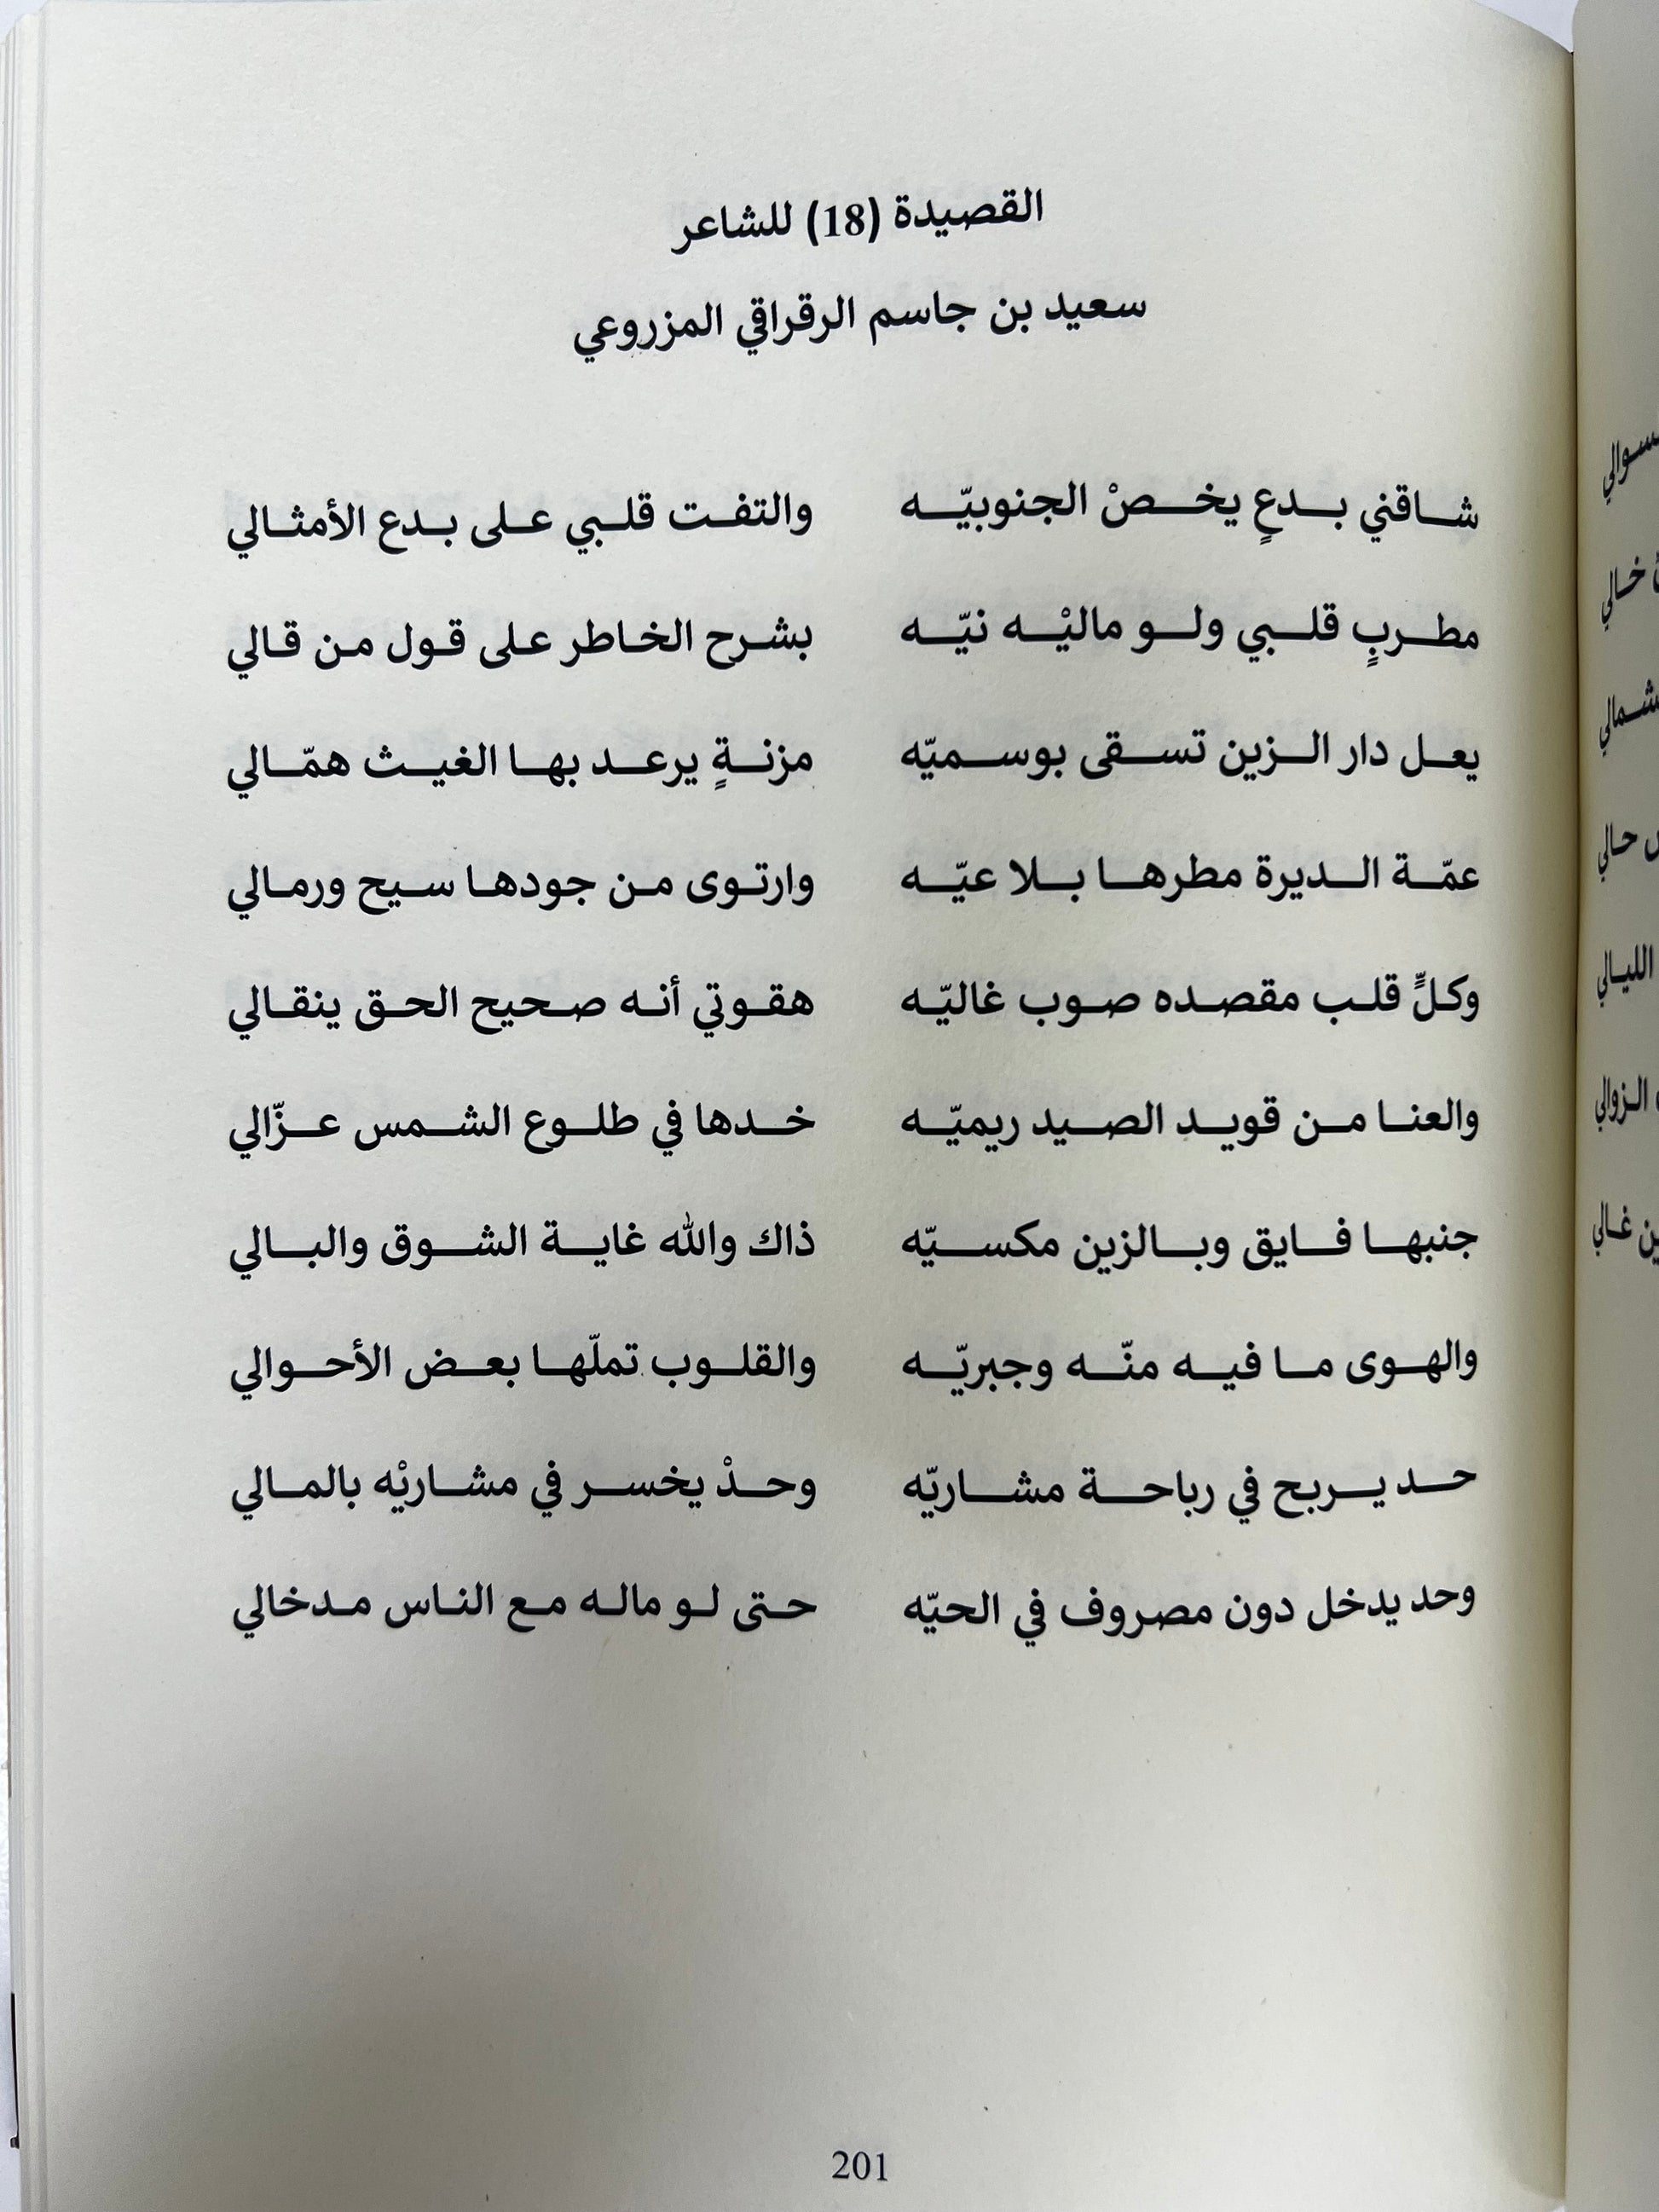 القصيدة (18) للشاعر
سعيد بن جاسم الرقراقي المزروعي
شاقني بدعٍ يخصْ الجنوبيّه والتفت قلبي على بدع الأمثالي
مطربٍ قلبي ولو ماليْه نيّه بشرح الخاطر على قول من قالي
يعل دار الزين تسقى بوسميّه مزنةٍ يرعد بها الغيث همّالي
عمّة الديرة مطرها بلا عيّه وارتوى من جودها سيح ورمالي
وكلٍّ قلب مقصده صوب غاليّه هقوتي أنه صحيح الحق ينقالي
والعنا من قويد الصيد ريميّه خدها في طلوع الشمس عزّالي
جنبها فايق وبالزين مكسيّه ذاك والله غاية الشوق والبالي
والهوى ما فيه منّه وجبريّه والقلوب تملّها بعض الأحوالي
حد يربح في رباحة مشاريّه وحدْ يخسر في مشاريْه بالمالي
وحد يدخل دون مصروف في الحيّه حتى لو ماله مع الناس مدخالي
201
خالي
حالي
الليالي
الزوالي
غالي